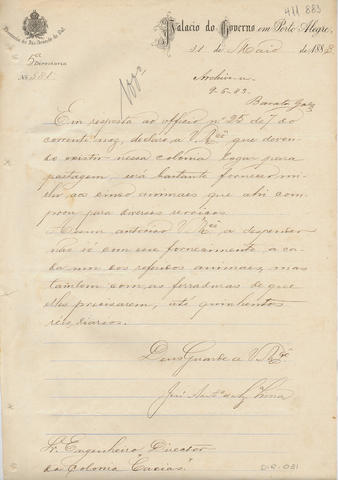 411 883
Provincia do Rio Grande do Sul
Palacio do Governo em Porto Alegre,
11 de Maio de 1883
5ª
Directoria
Nº 581
Archive-se
9-6-83.
Em resposta ao officio nº 25 de 7 do
corrente mez, declaro a V. Mcê que deven-
do existir nessa colonia logar para
pastagem, será bastante fornecer mi-
lho ao cinco animaes que ahi com-
prou para diversos serviços.
antoriso V. Mcê a despender
não só com esse fornecimento, a ca-
da um dos referidos animaes, mas
tambem com as ferraduras de que
elles precisarem, até quinhentos
réis, diarios.
Deus Guarde a V. Mcê
José Antº de
Sr. Engenheiro Director
da Colonia "Caxias".
D.R. 081